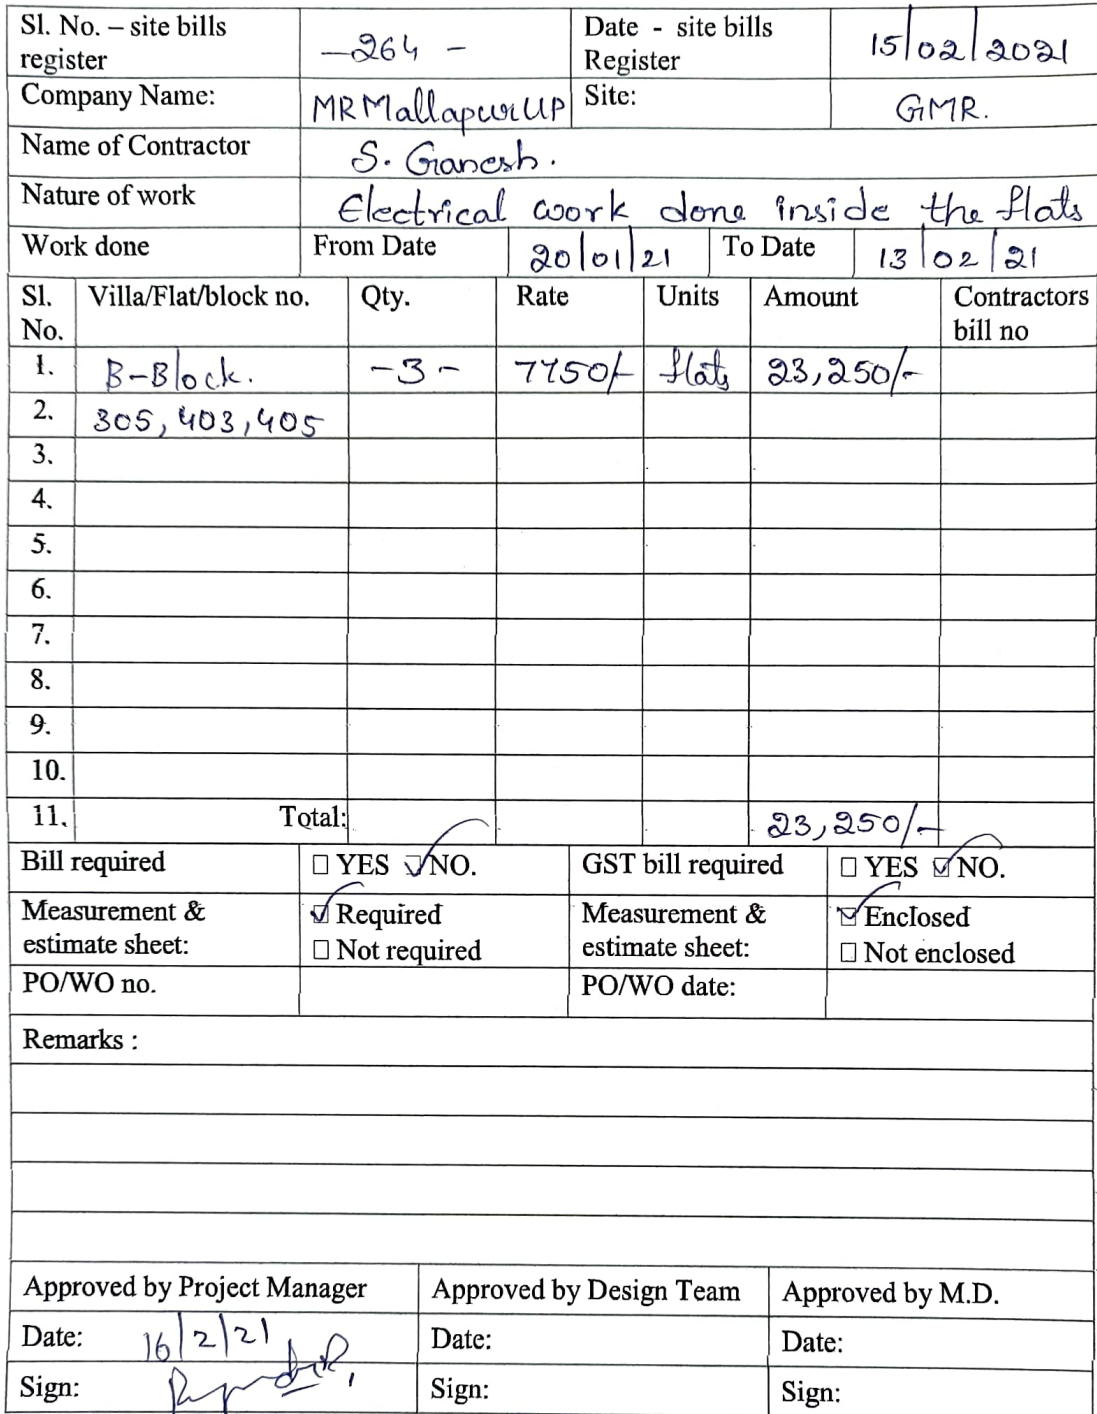 Sl. No. – site bills register -264- Date - site bills Register 15/02/2021
Company Name: MRMallapurUP Site: GMR.
Name of Contractor S. Ganesh.
Nature of work Electrical work done inside the flats
Work done From Date 20/01/21 To Date 13/02/21
Sl. No. Villa/Flat/block no. Qty. Rate Units Amount Contractors bill no
1. B-Block. -3- 7750/- flats 23,250/-
2. 305, 403, 405
3.
4.
5.
6.
7.
8.
9.
10.
11. Total: 23,250/-
Bill required ☐ YES ☑ NO. GST bill required ☐ YES ☑ NO.
Measurement & estimate sheet: ☑ Required ☐ Not required Measurement & estimate sheet: ☑ Enclosed ☐ Not enclosed
PO/WO no. PO/WO date:
Remarks :
Approved by Project Manager Approved by Design Team Approved by M.D.
Date: 16/2/21 Date: Date:
Sign: Sign: Sign: